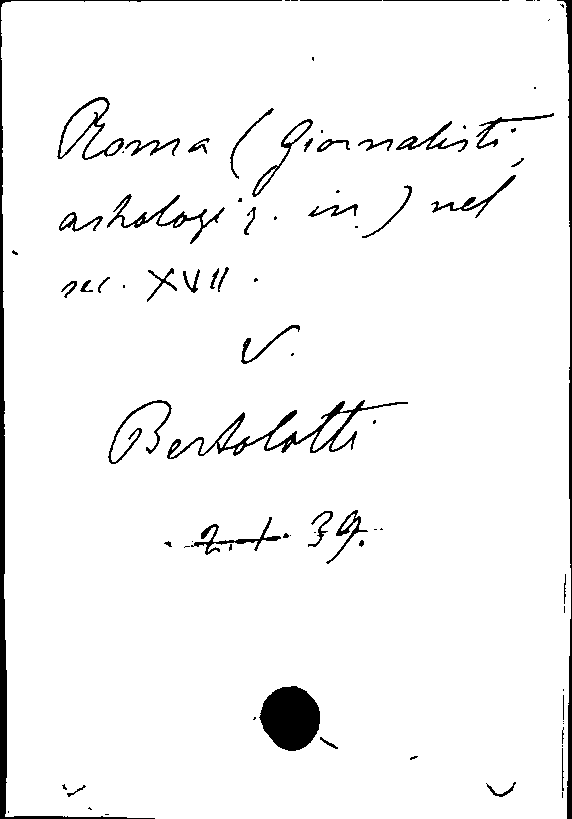 Roma (Giornalisti,
astrologi z. in.) nel
sec. XVII.
V.
Bertolotti
2. 1. 39.